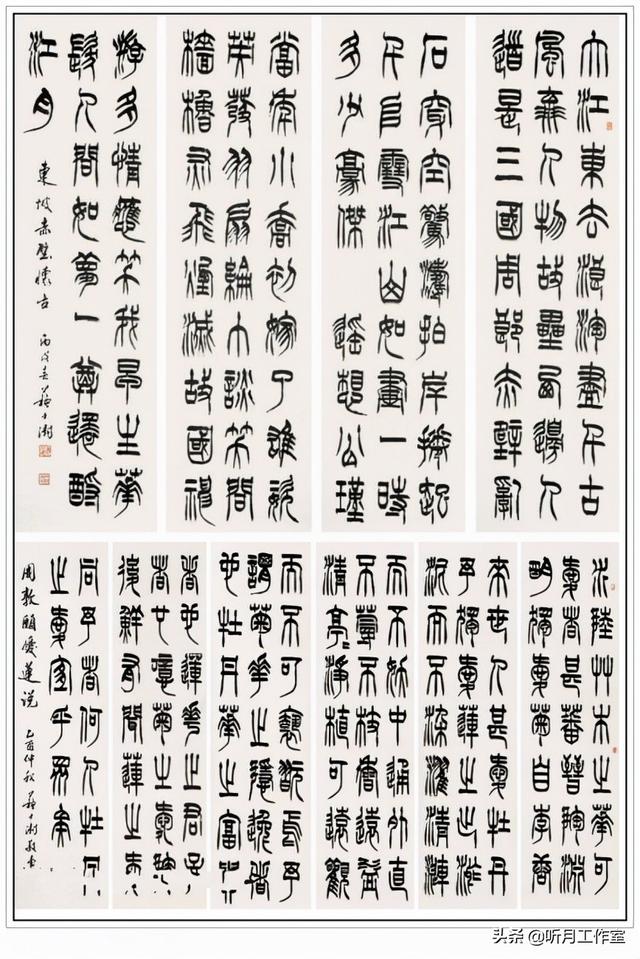 大江東去浪淘盡千古
風流人物故壘西邊人
道是三國周郎赤壁亂
石穿空驚濤拍岸捲起
千堆雪江山如畫一時
多少豪傑 遙想公瑾
當年小喬初嫁了雄姿
英發羽扇綸巾談笑間
檣櫓灰飛煙滅故國神
游多情應笑我早生華
髮人間如夢一尊還酹
江月
東坡赤壁懷古 丙戌春 蘇士澍
水陸艸木之華可
愛者甚蕃晉陶淵
明獨愛菊自李唐
來世人甚愛牡丹
予獨愛蓮之出淤
泥而不染濯清漣
而不妖中通外直
不蔓不枝香遠益
清亭亭淨植可遠觀
而不可褻翫焉予
謂菊華之隱逸者
也牡丹華之富貴
者也蓮華之君子
者也噫菊之愛陶
後鮮有聞蓮之愛
同予者何人牡丹
之愛宜乎眾矣
周敦頤愛蓮說 乙酉仲秋 蘇士澍敬書
头条 @听月工作室